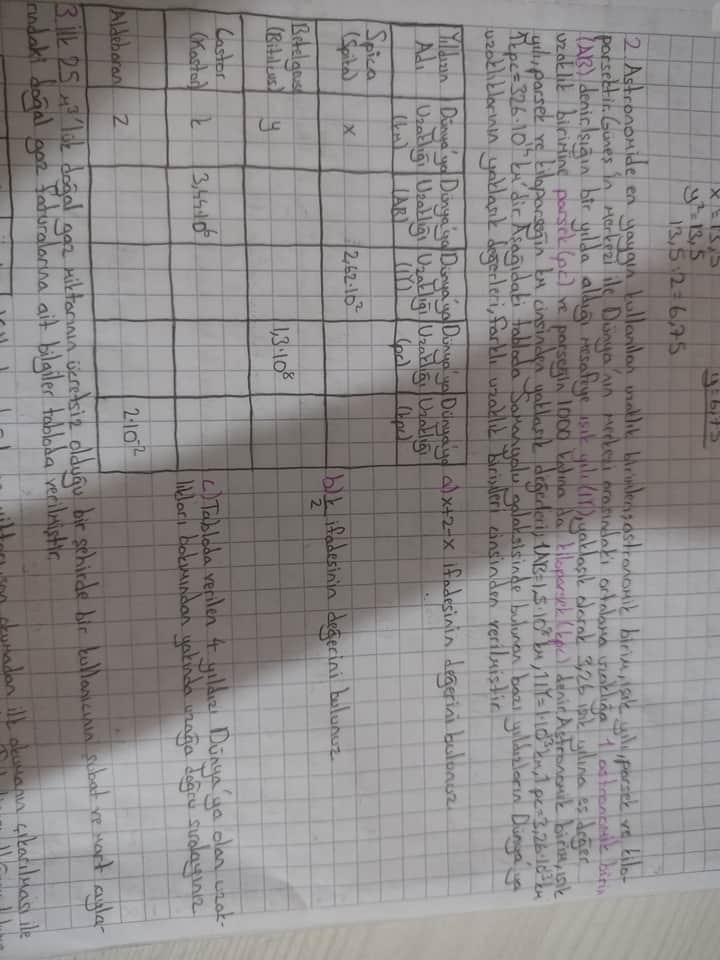 x² = 13,5
y² = 13,5
13,5:2 = 6,75
y = 6,75
2. Astronomide en yaygın kullanılan uzaklık birimleri; astronomik birim, ışık yılı, parsek ve kilo-
parsektir. Güneş'in merkezi ile Dünya'nın merkezi arasındaki ortalama uzaklığa 1 astronomik birim
(AB) denir. Işığın bir yılda aldığı mesafeye ışık yılı (IY), yaklaşık olarak 3,26 ışık yılına eş değer
uzaklık birimine parsek (pc) ve parseğin 1000 katına da kiloparsek (kpc) denir. Astronomik birim, ışık
yılı, parsek ve kiloparseğin km cinsinden yaklaşık değerleri, 1AB=1,5·10⁸ km, 1 IY=1·10¹³ km, 1 pc=3,26·10¹³ km
1 kpc=326·10¹⁴ km'dir. Aşağıdaki tabloda Samanyolu galaksisinde bulunan bazı yıldızların Dünya'ya
uzaklıklarının yaklaşık değerleri, farklı uzaklık birimleri cinsinden verilmiştir.
Yıldızın Adı | Dünya'ya Uzaklığı (km) | Dünya'ya Uzaklığı (AB) | Dünya'ya Uzaklığı (IY) | Dünya'ya Uzaklığı (pc) | Dünya'ya Uzaklığı (kpc)
Spica (Spika) | x | 2,62·10²
Betelgeuse | y | 1,3·10⁸
Castor (Kastor) | t | 3,44·10⁶
Aldebaran | z | 2·10⁻²
a) x+z-x ifadesinin değerini bulunuz
b) k/2 ifadesinin değerini bulunuz
c) Tabloda verilen 4 yıldızı Dünya'ya olan uzak-
lıkları bakımından yakından uzağa doğru sıralayınız
3. ilk 25 m³'lük doğal gaz miktarının ücretsiz olduğu bir şehirde bir kullanıcının şubat ve mart ayla-
rındaki doğal gaz faturalarına ait bilgiler tabloda verilmiştir.
okumadan ilk okumanın çıkarılması ile